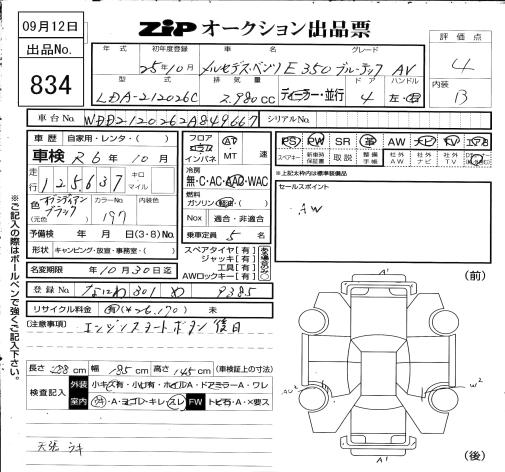 09月12日
ZIP オークション出品票
出品No.
834
評価点
4
内装
B
年式 初年度登録 車名 グレード
25年10月 メルセデス・ベンツ E350ブルーテック AV
型式 排気量 ドア ハンドル
LDA-212026C 2,980cc ディーラー・並行 4 左・右
車台No. WDD2120262A849667 シリアルNo.
車歴 自家用・レンタ・( )
車検 R6年10月
走行 125,637 キロ マイル
色 (元色) オブシディアンブラック カラーNo. 197
予備検 年 月 日(3・8)No.
形状 キャンピング・放宣・事務室・( )
名変期限 年10月30日迄
登録No. なにわ 301 め 9385
リサイクル料金 有(¥26,170) 未
フロア フロア コラム インパネ AT MT 速
冷房 無・C・AC・AAC・WAC
燃料 ガソリン・軽油・( )
Nox 適合・非適合
乗車定員 5名
スペアタイヤ[有]
ジャッキ[有]
工具[有]
AWロックキー[有]
PS PW SR 革 AW ナビ TV エアB
スペアキー 新車時保証書 取説 整備手帳 社外AW 社外ナビ 社外TV
※上記太枠内は標準装備品
セールスポイント
AW
[注意事項]
エンジンスタートボタン後日
長さ488cm 幅185cm 高さ145cm (車検証上の寸法)
検査記入 外装 小キズ有・小凹有・ホイルA・ドアミラーA・ワレ
室内 ウキ・A・ヨゴレ・キレ・スレ FW トビ石・A・X要ス
天張ウキ
※ご記入の際はボールペンで強くご記入下さい。
(前)
A1
AU2
W2
A1
(後)